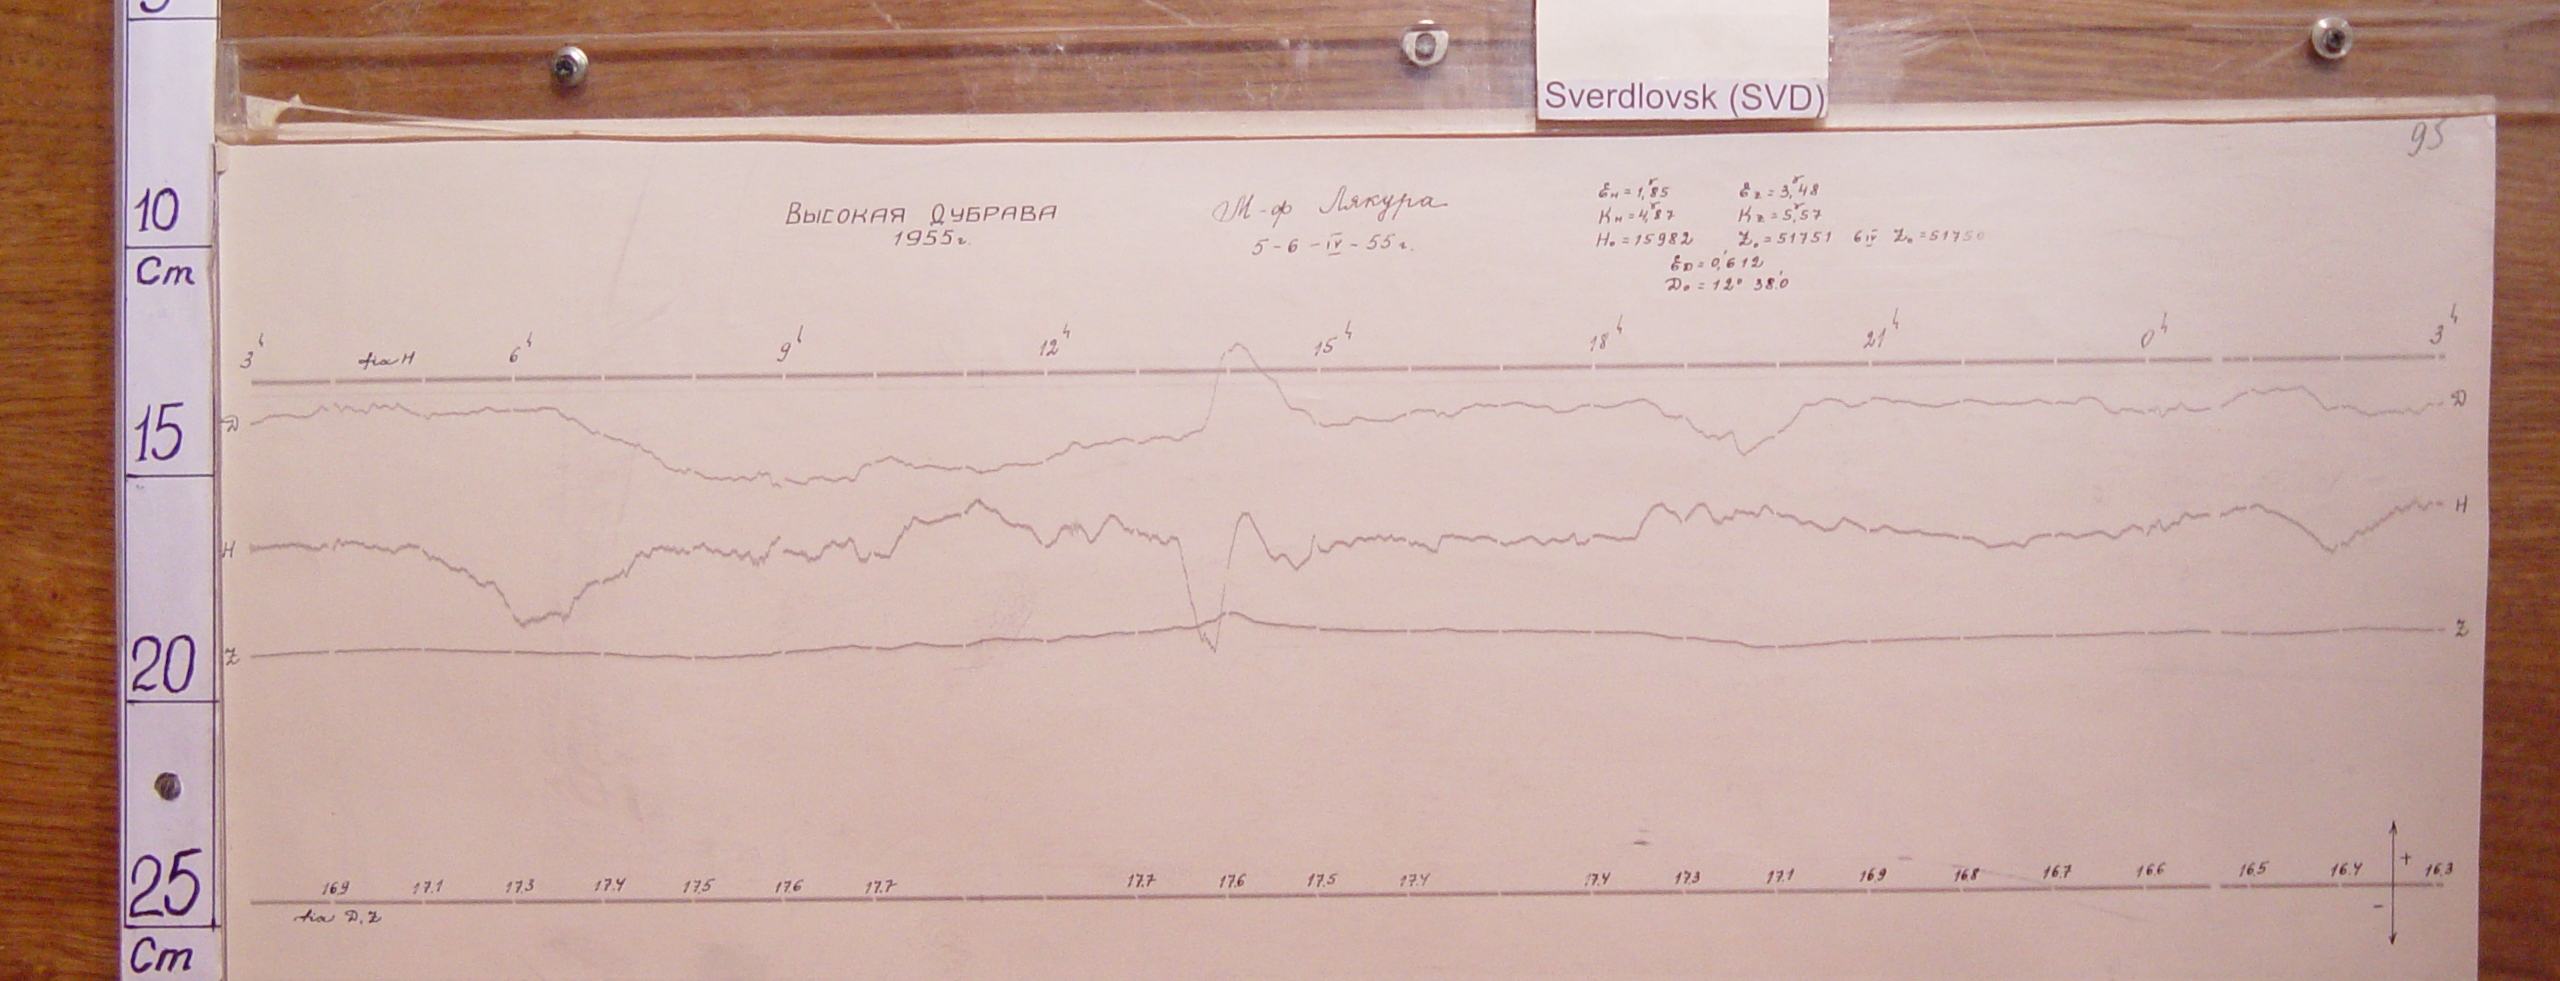 Sverdlovsk (SVD)
95
10
Cm
15
20
25
Cm
ВЫСОКАЯ ДУБРАВА
1955г.
М-ф Лякура
5-6-IV-55г.
Ɛн=1,γ85 Ɛz=3,γ48
Кн=4,γ87 Кz=5,γ57
Н₀=15982 Z₀=51751 6 IV Z₀=51750
ƐD=0,′612
D₀=12° 38,′0
3ʰ 6ʰ 9ʰ 12ʰ 15ʰ 18ʰ 21ʰ 0ʰ 3ʰ
D D
H H
Z Z
16.9 17.1 17.3 17.4 17.5 17.6 17.7 17.7 17.6 17.5 17.4 17.4 17.3 17.1 16.9 16.8 16.7 16.6 16.5 16.4 16.3
+
-
D,Z